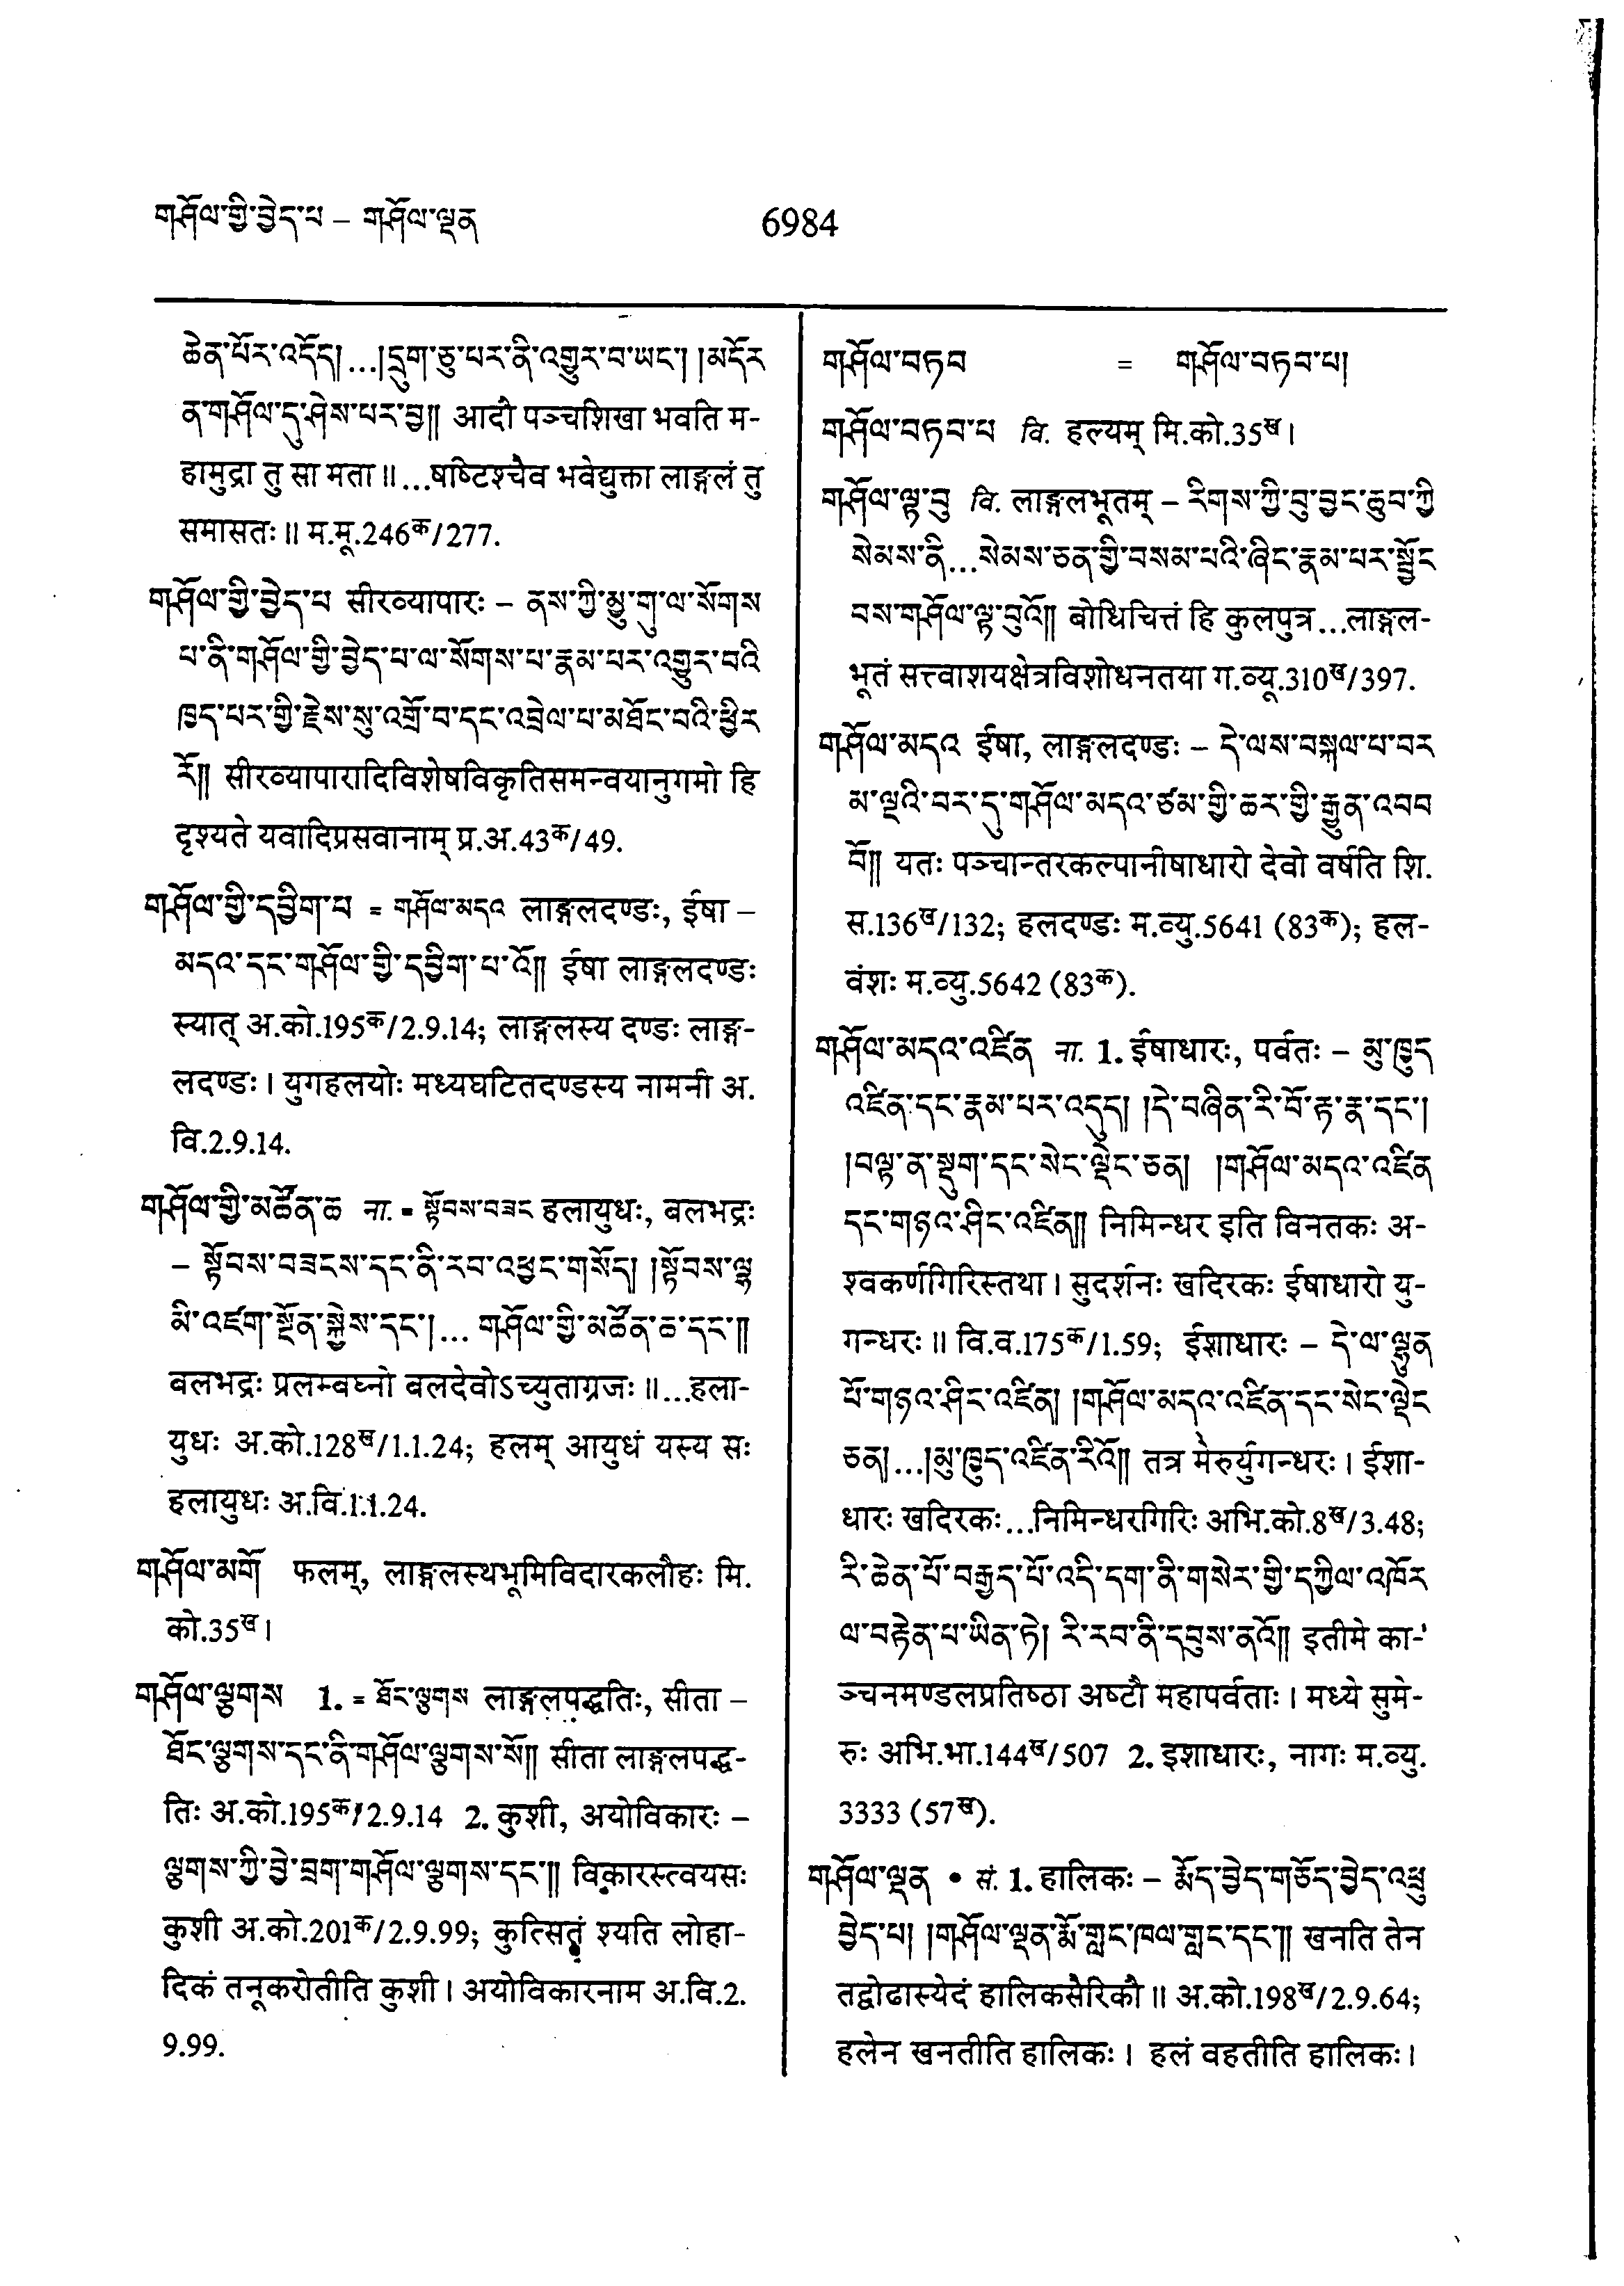 གཤོལ་གྱི་བྱེད་པ – གཤོལ་ལྡན
6984
ཆེན་པོར་འདོད། ...།དྲུག་ཅུ་པར་ནི་འགྱུར་བ་ཡང་། །མདོར
ན་གཤོལ་དུ་ཤེས་པར་བྱ།། आदौ पञ्चशिखा भवति म-
हामुद्रा तु सा मता ॥ ...षष्टिश्चैव भवेद्युक्ता लाङ्गलं तु
समासतः ॥ म.मू.246क/277.
གཤོལ་གྱི་བྱེད་པ सीरव्यापारः – ནས་ཀྱི་མྱུ་གུ་ལ་སོགས
པ་ནི་གཤོལ་གྱི་བྱེད་པ་ལ་སོགས་པ་རྣམ་པར་འགྱུར་བའི
ཁྱད་པར་གྱི་རྗེས་སུ་འགྲོ་བ་དང་འབྲེལ་པ་མཐོང་བའི་ཕྱིར
རོ།། सीरव्यापारादिविशेषविकृतिसमन्वयानुगमो हि
दृश्यते यवादिप्रसवानाम् प्र.अ.43क/49.
གཤོལ་གྱི་དབྱིག་པ = གཤོལ་མདའ लाङ्गलदण्डः, ईषा –
མདའ་དང་གཤོལ་གྱི་དབྱིག་པ་འོ།། ईषा लाङ्गलदण्डः
स्यात् अ.को.195क/2.9.14; लाङ्गलस्य दण्डः लाङ्ग-
लदण्डः । युगहलयोः मध्यघटितदण्डस्य नामनी अ.
वि.2.9.14.
གཤོལ་གྱི་མཚོན་ཆ ना. = སྟོབས་བཟང हलायुधः, बलभद्रः
– སྟོབས་བཟངས་དང་ནི་རབ་འཕྱང་གསོད། །སྟོབས་ལྷ
མི་འཛག་སྔོན་སྐྱེས་དང་། ... གཤོལ་གྱི་མཚོན་ཆ་དང་།།
बलभद्रः प्रलम्बघ्नो बलदेवोऽच्युताग्रजः ॥ ...हला-
युधः अ.को.128ख/1.1.24; हलम् आयुधं यस्य सः
हलायुधः अ.वि.1.1.24.
གཤོལ་མགོ फलम्, लाङ्गलस्थभूमिविदारकलौहः मि.
को.35ख ।
གཤོལ་ལྕགས 1. = ཐོང་ལྕགས लाङ्गलपद्धतिः, सीता –
ཐོང་ལྕགས་དང་ནི་གཤོལ་ལྕགས་སོ།། सीता लाङ्गलपद्ध-
तिः अ.को.195क/2.9.14 2. कुशी, अयोविकारः –
ལྕགས་ཀྱི་བྱེ་བྲག་གཤོལ་ལྕགས་དང་།། विकारस्त्वयसः
कुशी अ.को.201क/2.9.99; कुत्सितं श्यति लोहा-
दिकं तनूकरोतीति कुशी । अयोविकारनाम अ.वि.2.
9.99.
གཤོལ་བཏབ = གཤོལ་བཏབ་པ།
གཤོལ་བཏབ་པ वि. हल्यम् मि.को.35ख ।
གཤོལ་ལྟ་བུ वि. लाङ्गलभूतम् – རིགས་ཀྱི་བུ་བྱང་ཆུབ་ཀྱི
སེམས་ནི...སེམས་ཅན་གྱི་བསམ་པའི་ཞིང་རྣམ་པར་སྦྱོང
བས་གཤོལ་ལྟ་བུའོ།། बोधिचित्तं हि कुलपुत्र...लाङ्गल-
भूतं सत्त्वाशयक्षेत्रविशोधनतया ग.व्यू.310ख/397.
གཤོལ་མདའ ईषा, लाङ्गलदण्डः – དེ་ལས་བསྐལ་པ་བར
མ་ལྔའི་བར་དུ་གཤོལ་མདའ་ཙམ་གྱི་ཆར་གྱི་རྒྱུན་འབབ
བོ།། यतः पञ्चान्तरकल्पानीषाधारो देवो वर्षति शि.
स.136ख/132; हलदण्डः म.व्यु.5641 (83क); हल-
वंशः म.व्यु.5642 (83क).
གཤོལ་མདའ་འཛིན ना. 1. ईषाधारः, पर्वतः – མུ་ཁྱུད
འཛིན་དང་རྣམ་པར་འདུད། །དེ་བཞིན་རི་བོ་རྟ་རྣ་དང་།
།བལྟ་ན་སྡུག་དང་སེང་ལྡེང་ཅན། །གཤོལ་མདའ་འཛིན
དང་གཉའ་ཤིང་འཛིན།། निमिन्धर इति विनतकः अ-
श्वकर्णगिरिस्तथा । सुदर्शनः खदिरकः ईषाधारो यु-
गन्धरः ॥ वि.व.175क/1.59; ईशाधारः – དེ་ལ་ལྷུན
པོ་གཉའ་ཤིང་འཛིན། །གཤོལ་མདའ་འཛིན་དང་སེང་ལྡེང
ཅན། ...།མུ་ཁྱུད་འཛིན་རིའོ།། तत्र मेरुर्युगन्धरः । ईशा-
धारः खदिरकः...निमिन्धरगिरिः अभि.को.8ख/3.48;
རི་ཆེན་པོ་བརྒྱད་པོ་འདི་དག་ནི་གསེར་གྱི་དཀྱིལ་འཁོར
ལ་བརྟེན་པ་ཡིན་ཏེ། རི་རབ་ནི་དབུས་ནའོ།། इतीमे का-
ञ्चनमण्डलप्रतिष्ठा अष्टौ महापर्वताः । मध्ये सुमे-
रुः अभि.भा.144ख/507 2. इशाधारः, नागः म.व्यु.
3333 (57ख).
གཤོལ་ལྡན • सं. 1. हालिकः – རྨོད་བྱེད་གཅོད་བྱེད་འཕྲུ
བྱེད་པ། །གཤོལ་ལྡན་རྨོ་གླང་ཁལ་གླང་དང་།། खनति तेन
तद्वोढास्येदं हालिकसैरिकौ ॥ अ.को.198ख/2.9.64;
हलेन खनतीति हालिकः । हलं वहतीति हालिकः ।